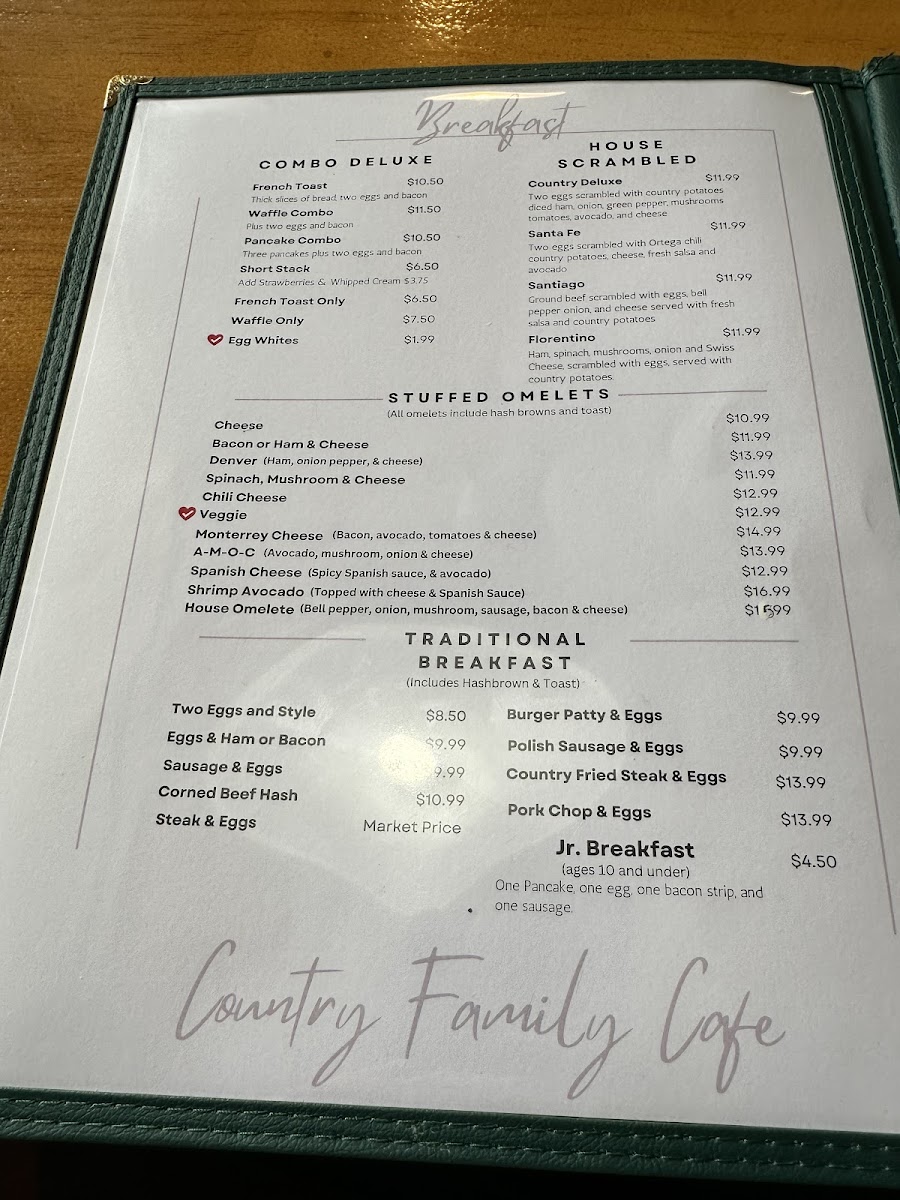 Breakfast
COMBO DELUXE
French Toast $10.50
Thick slices of bread, two eggs and bacon
Waffle Combo $11.50
Plus two eggs and bacon
Pancake Combo $10.50
Three pancakes plus two eggs and bacon
Short Stack $6.50
Add Strawberries & Whipped Cream $3.75
French Toast Only $6.50
Waffle Only $7.50
Egg Whites $1.99
HOUSE
SCRAMBLED
Country Deluxe $11.99
Two eggs scrambled with country potatoes
diced ham, onion, green pepper, mushrooms
tomatoes, avocado, and cheese
Santa Fe $11.99
Two eggs scrambled with Ortega chili
country potatoes, cheese, fresh salsa and
avocado
Santiago $11.99
Ground beef scrambled with eggs, bell
pepper onion, and cheese served with fresh
salsa and country potatoes
Florentino $11.99
Ham, spinach, mushrooms, onion and Swiss
Cheese, scrambled with eggs, served with
country potatoes.
STUFFED OMELETS
(All omelets include hash browns and toast)
Cheese $10.99
Bacon or Ham & Cheese $11.99
Denver (Ham, onion pepper, & cheese) $13.99
Spinach, Mushroom & Cheese $11.99
Chili Cheese $12.99
Veggie $12.99
Monterrey Cheese (Bacon, avocado, tomatoes & cheese) $14.99
A-M-O-C (Avocado, mushroom, onion & cheese) $13.99
Spanish Cheese (Spicy Spanish sauce, & avocado) $12.99
Shrimp Avocado (Topped with cheese & Spanish Sauce) $16.99
House Omelete (Bell pepper, onion, mushroom, sausage, bacon & cheese) $15.99
TRADITIONAL
BREAKFAST
(Includes Hashbrown & Toast)
Two Eggs and Style $8.50
Eggs & Ham or Bacon $9.99
Sausage & Eggs 9.99
Corned Beef Hash $10.99
Steak & Eggs Market Price
Burger Patty & Eggs $9.99
Polish Sausage & Eggs $9.99
Country Fried Steak & Eggs $13.99
Pork Chop & Eggs $13.99
Jr. Breakfast $4.50
(ages 10 and under)
One Pancake, one egg, one bacon strip, and
one sausage.
Country Family Cafe